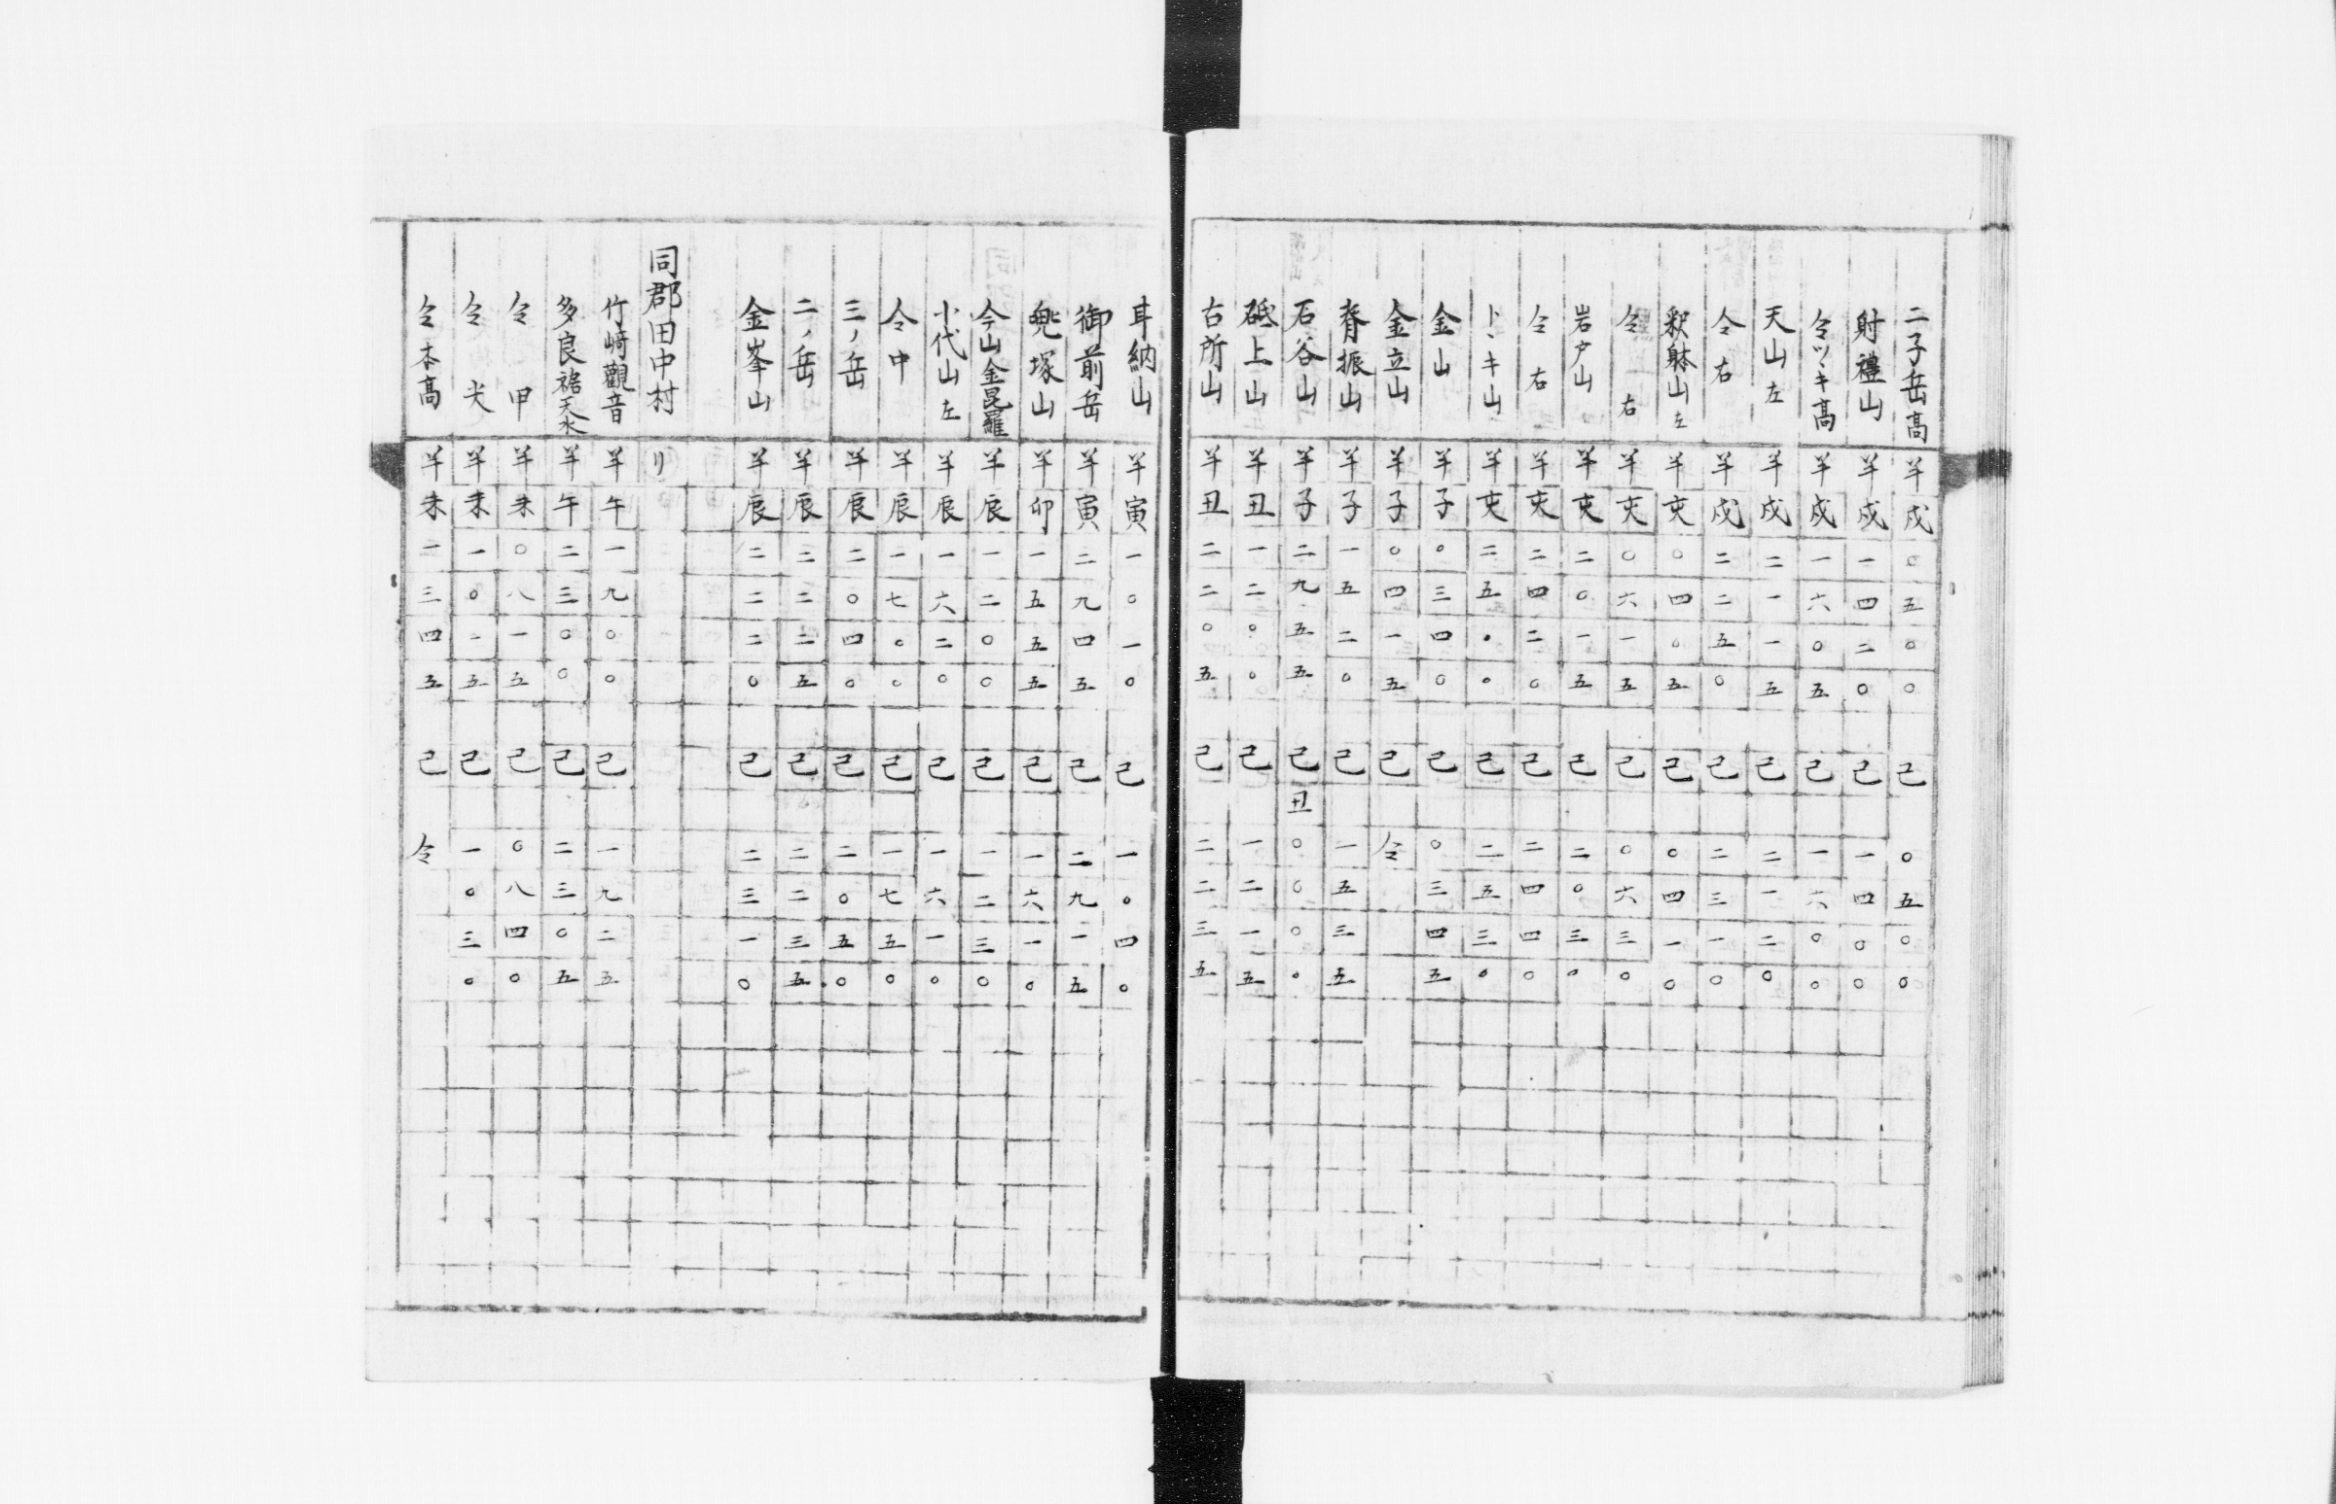 二子岳高 羊戌〇五〇〇 己〇五〇〇
射禮山 羊戌一四二〇 己一四〇〇
仝ツヽキ高 羊戌一六〇五 己一六〇〇
天山左 羊戌二一一五 己二一二〇
仝右 羊戌二二五〇 己二三一〇
釈躰山左 羊亥〇四〇五 己〇四一〇
仝右 羊亥〇六一五 己〇六三〇
岩戸山 羊亥二〇一五 己二〇三〇
仝右 羊亥二四二〇 己二四四〇
トヽキ山 羊亥二五〇〇 己二五三〇
金山 羊子〇三四〇 己〇三四五
金立山 羊子〇四一五 己仝
脊振山 羊子一五二〇 己一五三五
石谷山 羊子二九五五 己丑〇〇〇〇
砥上山 羊丑一二〇〇 己一二一五
古所山 羊丑二二〇五 己二二三五
耳納山 羊寅一〇一〇 己一〇四〇
御前岳 羊寅二九四五 己二九一五
兜塚山 羊卯一五五五 己一六一〇
今山金昆羅 羊辰一二〇〇 己一二三〇
小代山左 羊辰一六二〇 己一六一〇
仝中 羊辰一七〇〇 己一七五〇
三ノ岳 羊辰二〇四〇 己二〇五〇
二ノ岳 羊辰二二二五 己二二三五
金峯山 羊辰二二二〇 己二三一〇
同郡田中村 リ
竹﨑觀音 羊午一九〇〇 己一九二五
多良裾天水 羊午二三〇〇 己二三〇五
仝甲 羊未〇八一五 己〇八四〇
仝 羊未一〇二五 己一〇三〇
仝本高 羊未一三四五 己仝